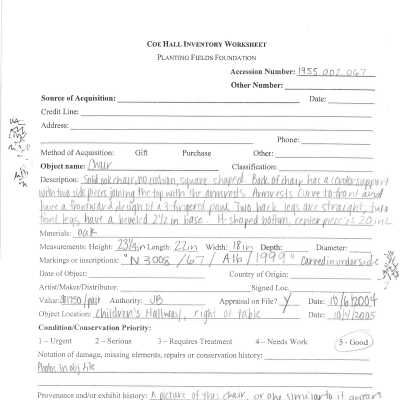 COE HALL INVENTORY WORKSHEET
PLANTING FIELDS FOUNDATION
Accession Number: 1955.002.067
Other Number:
Source of Acquisition: Date:
Credit Line:
Address:
Phone:
Method of Acquisition: Gift Purchase Other:
Object name: Chair Classification:
Description: Solid oak chair, no cushion, square shaped. Back of chair has a center support
with two side pieces joining the top with the armrests. Armrests curve to front and
have a downward design of a 3 fingered pawl. Two back legs are straight, two
front legs have a beveled 2½ in base. H-shaped bottom, center piece is 20 in
Materials: oak
Measurements: Height: 23¼in Length: 22in Width: 18in Depth: Diameter:
Markings or inscriptions: "N3008 /67/ A16/1999" carved in underside
Date of Object: Country of Origin:
Artist/Maker/Distributor: Signed Loc.
Value: $1750/pair Authority: JB Appraisal on File? Y Date: 10/6/2004
Object Location: Children's Hallway, right of table Date: 10/4/2005
Condition/Conservation Priority:
1 – Urgent 2 – Serious 3 – Requires Treatment 4 – Needs Work 5 - Good
Notation of damage, missing elements, repairs or conservation history:
Photos in obj file
Provenance and/or exhibit history: A picture of this chair, or one similar to it appears